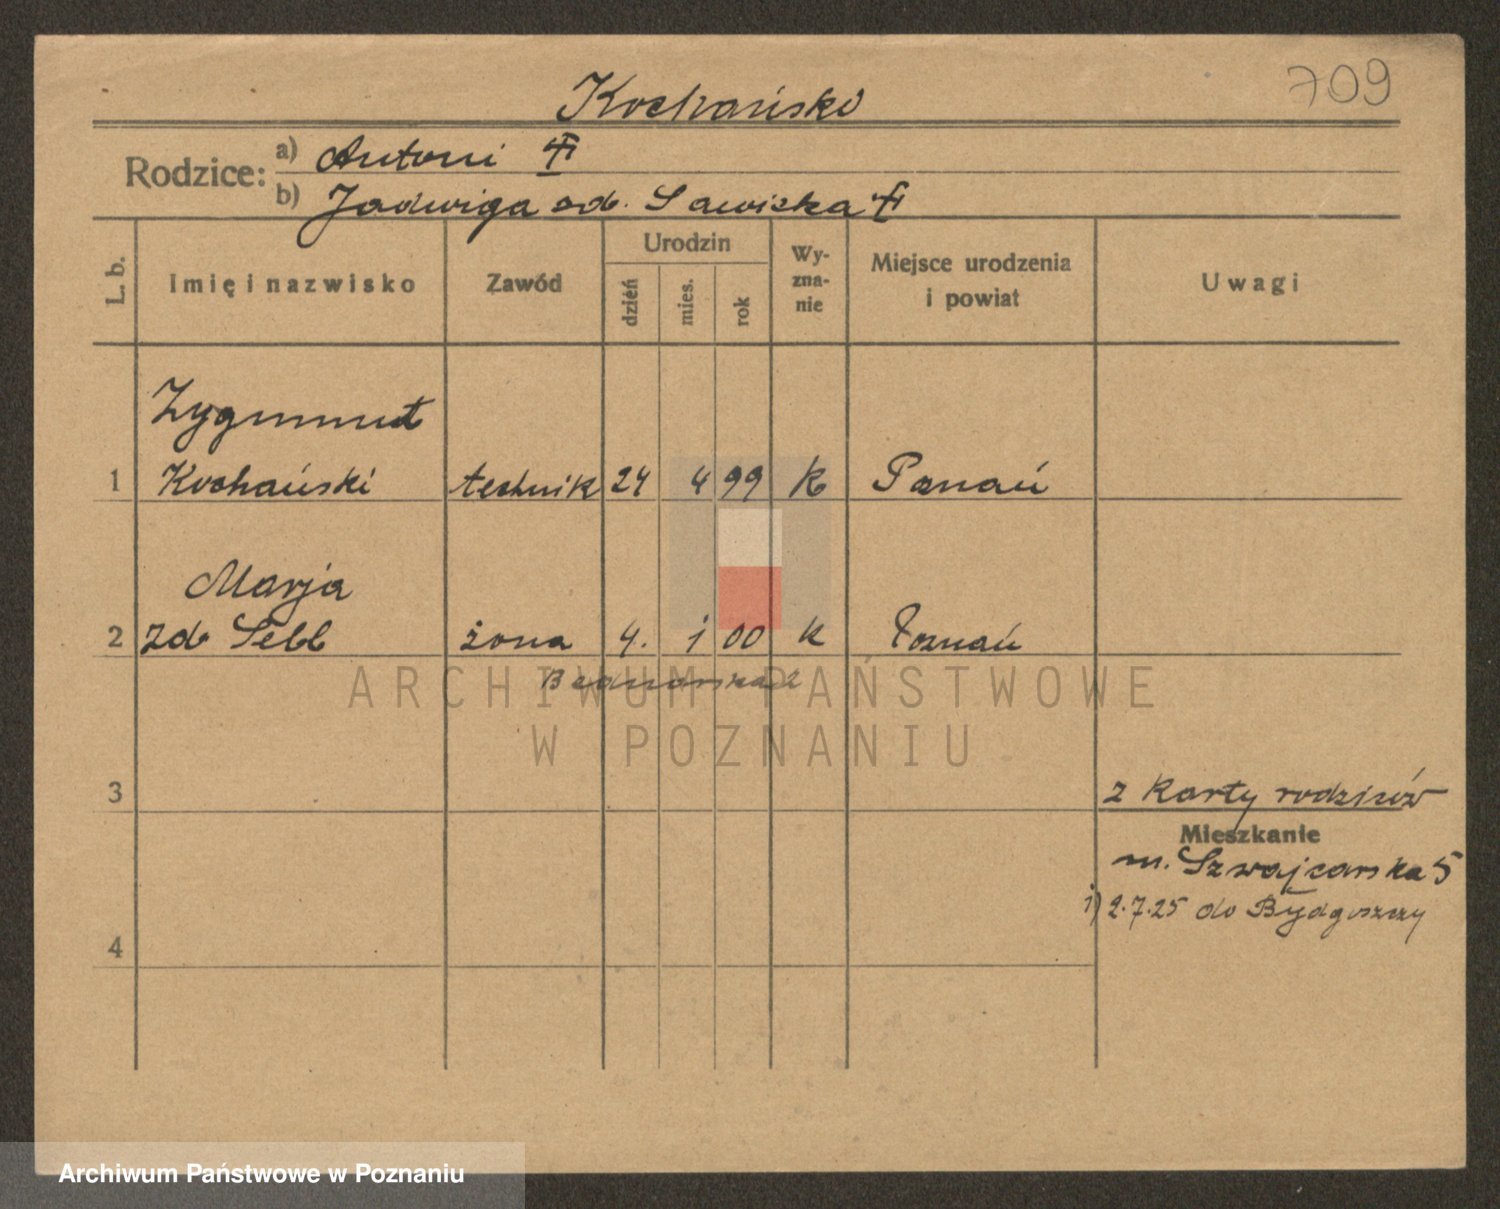 709
Kochański
Rodzice: a) Antoni
b) Jadwiga od. Sawicka
L. b.
Imię i nazwisko
Zawód
Urodzin
dzień
mies.
rok
Wy-
zna-
nie
Miejsce urodzenia
i powiat
Uwagi
Zygmunt
1 Kochański technik 24 4 99 K Poznań
Marja
2 zd Sell żona 4. 1 00 K Poznań
Bednarska 2
ARCHIWUM PAŃSTWOWE
W POZNANIU
3
z karty rodziców
Mieszkanie
m. Szwajcarska 5
1) 2.7.25 do Bydgoszczy
4
Archiwum Państwowe w Poznaniu